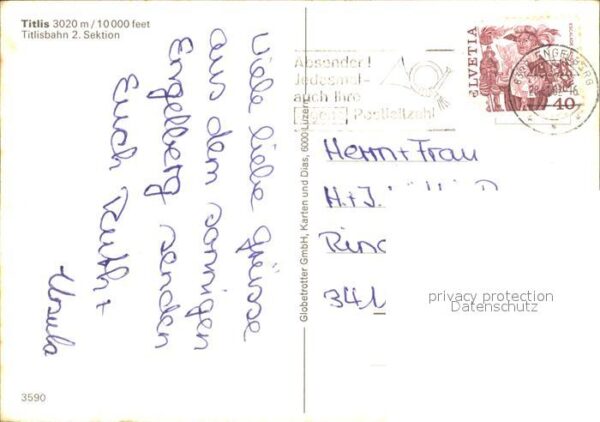 Titlis 3020 m / 10 000 feet
Titlisbahn 2. Sektion
Viele liebe Grüsse
aus dem sonnigen
Engelberg senden
Euch Ruth +
Ursula
3590
Globetrotter GmbH, Karten und Dias, 6000 Luzern
Absender!
Jedesmal
auch Ihre
Postleitzahl
HELVETIA
40
ENGELBERG
Herrn + Frau
H. + J.
341
privacy protection
Datenschutz